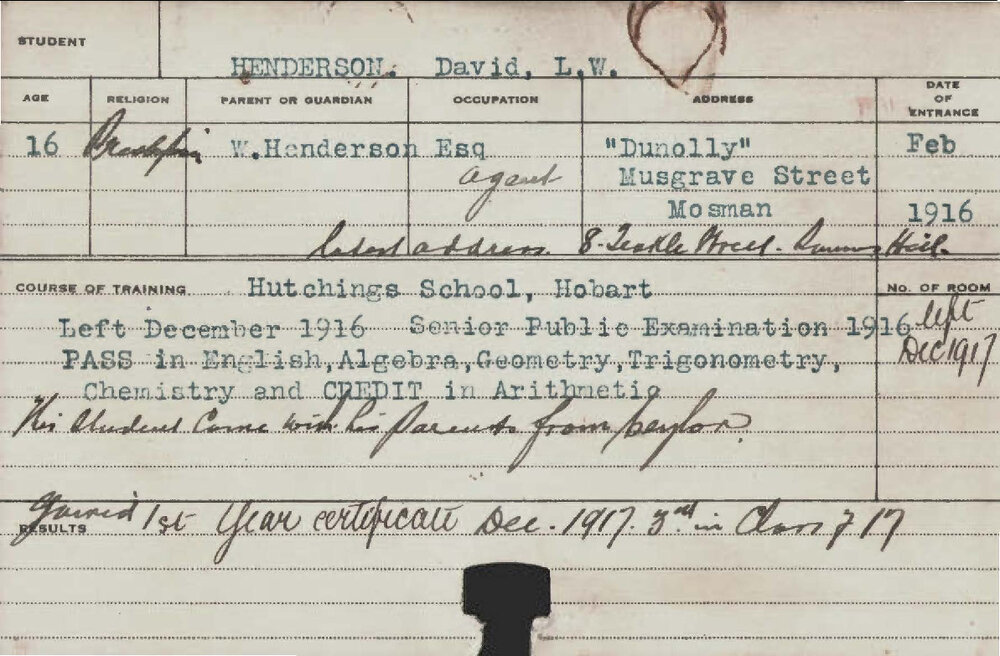 STUDENT
HENDERSON. David, L.W.
AGE RELIGION PARENT OR GUARDIAN OCCUPATION ADDRESS DATE OF ENTRANCE
16 W.Henderson Esq "Dunolly" Feb
agent Musgrave Street
Mosman 1916
Latest address. 8. Teakle Street. Summer Hill.
COURSE OF TRAINING Hutchings School, Hobart No. OF ROOM
Left December 1916 Senior Public Examination 1916 left
PASS in English,Algebra,Geometry,Trigonometry, Dec 1917
Chemistry and CREDIT in Arithmetic
This Student Came with his Parents from Ceylon.
RESULTS Gained 1st Year certificate Dec. 1917. 3rd in Class of 17